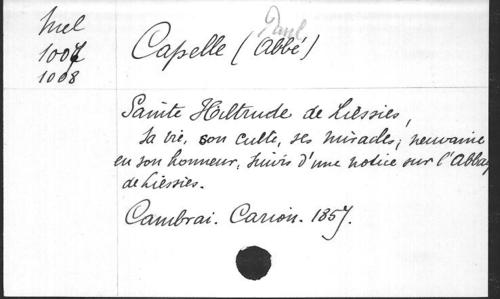 Mel
1007
1008
Paul
Capelle (Abbé)
Sainte Hiltrude de Liessies,
sa vie, son culte, ses miracles; neuvaine
en son honneur, suivis d'une notice sur l'Abbay
de Liessies.
Cambrai. Carion. 1857.